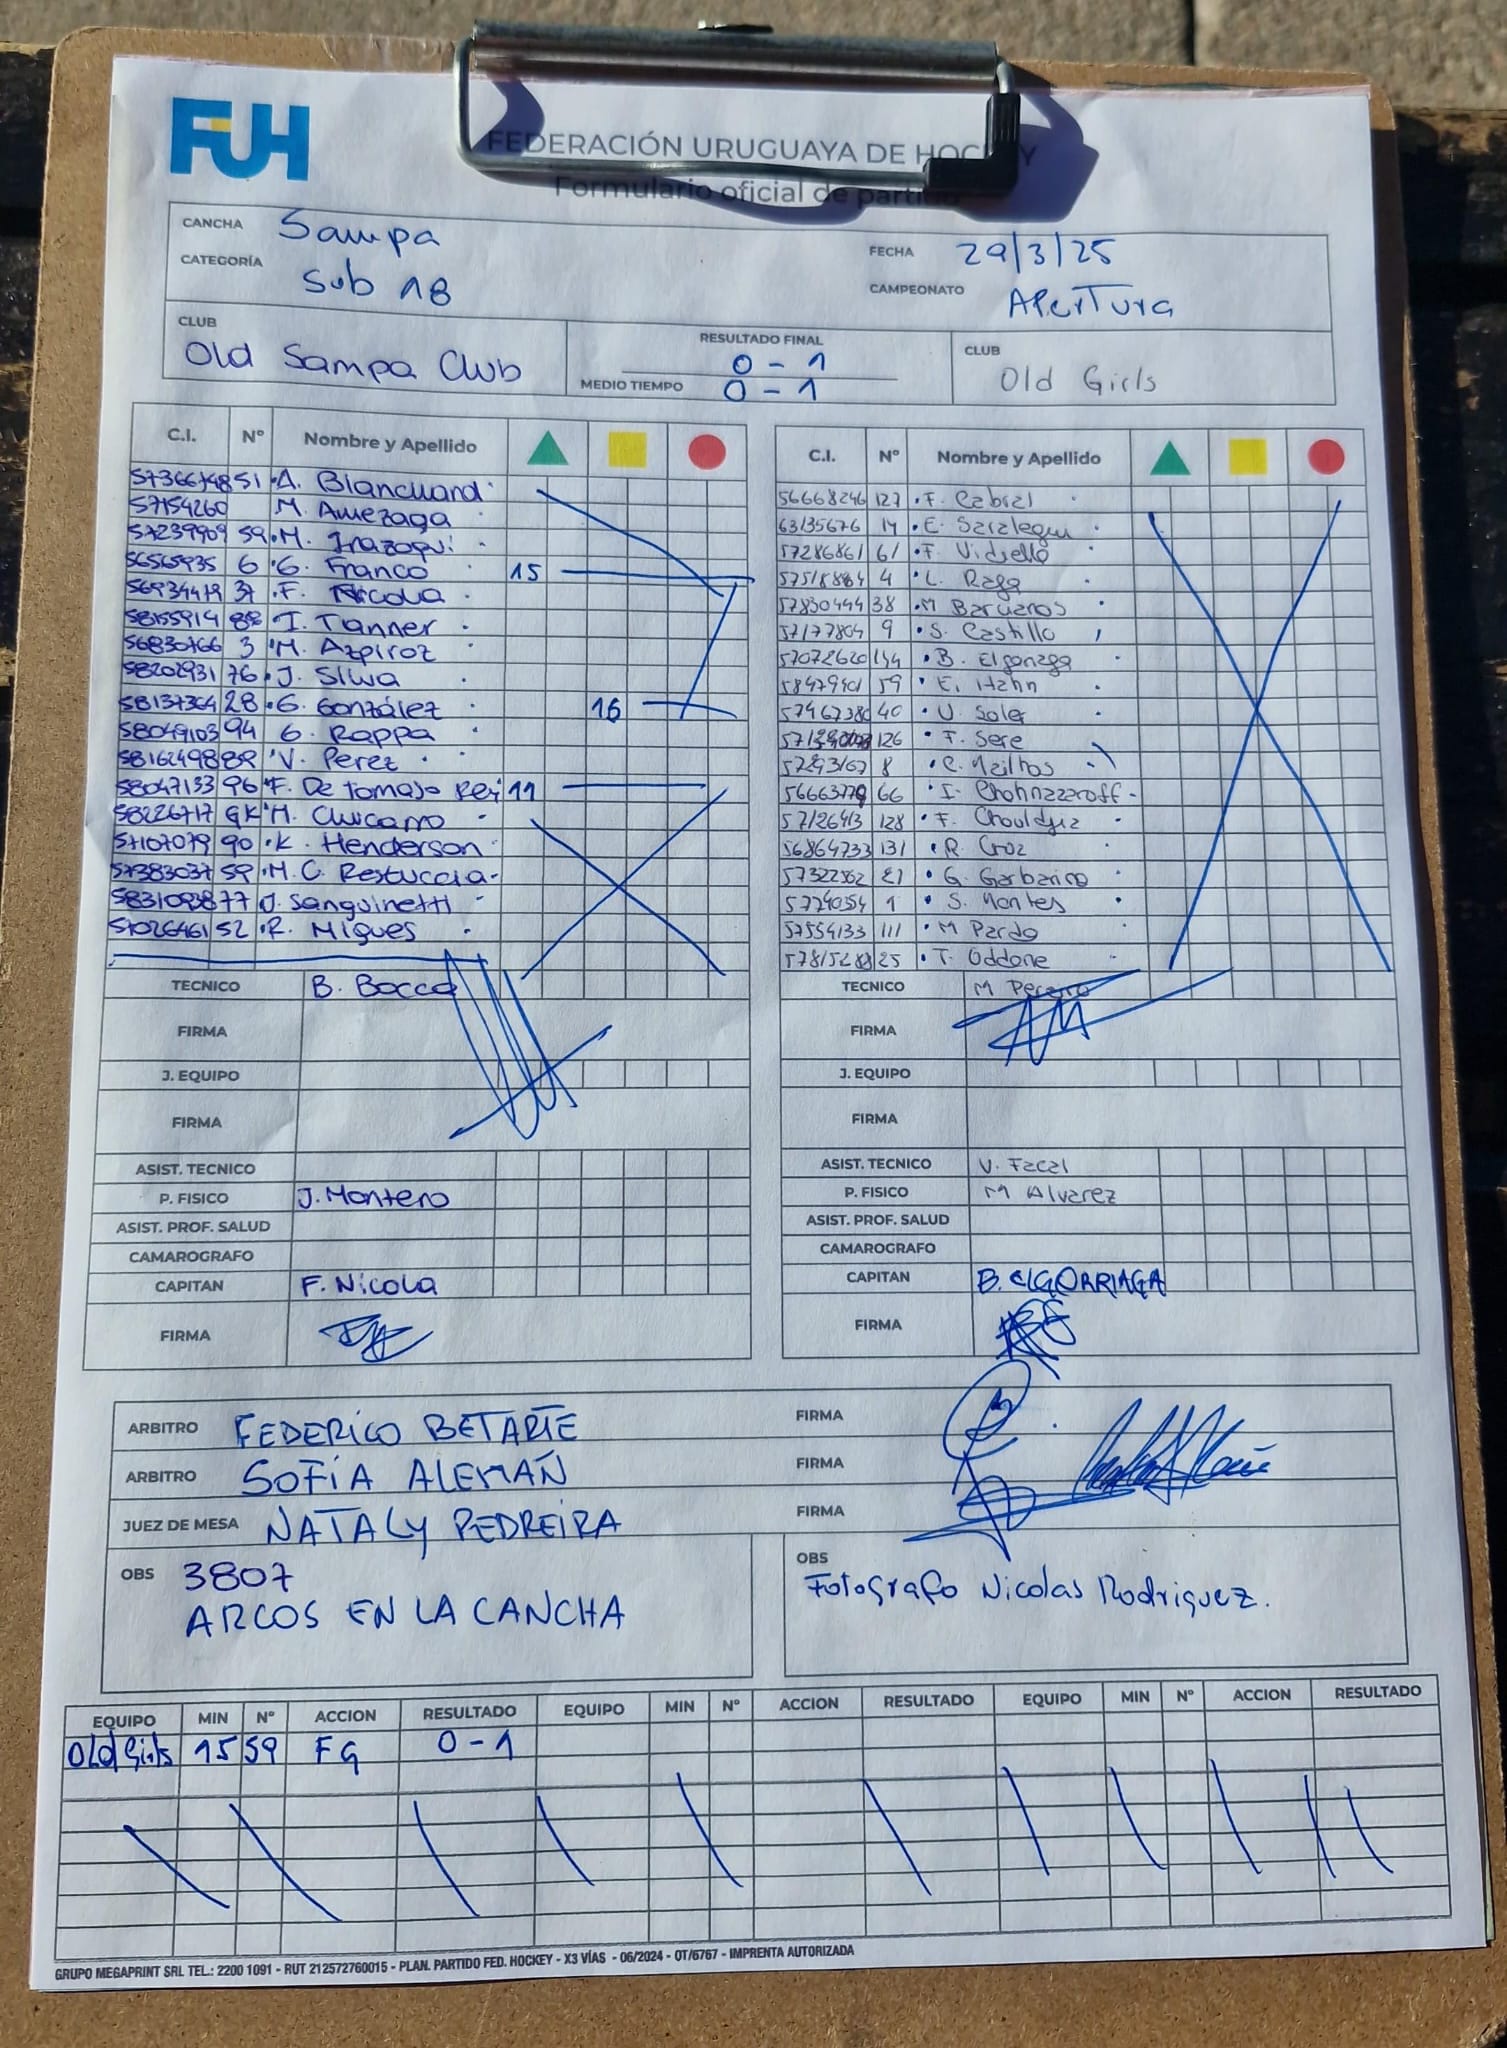 FUH
FEDERACIÓN URUGUAYA DE HOCKEY
Formulario oficial de partido
CANCHA Sampa FECHA 29/3/25
CATEGORÍA Sub 18 CAMPEONATO Apertura
CLUB Old Sampa Club RESULTADO FINAL 0 - 1 MEDIO TIEMPO 0 - 1 CLUB Old Girls
C.I. Nº Nombre y Apellido
51 A. Blanchard
57154260 M. Amezaga
57239909 59 M. Irazoqui
56565935 6 G. Franco 15
56934419 37 F. Nicola
58155914 I. Tanner
56830766 3 M. Azpiroz
58202931 76 J. Silva
58137364 28 G. González 16
58049103 94 G. Rappa
58162498 89 V. Perez
58047133 96 F. De Tomaso Rey 11
58226717 GK M. Chicarro
57107079 90 K. Henderson
57383037 59 M. C. Restuccia
58310938 77 J. Sanguinetti
57026461 52 R. Migues
TECNICO B. Bocca
FIRMA
J. EQUIPO
FIRMA
ASIST. TECNICO
P. FISICO J. Montero
ASIST. PROF. SALUD
CAMAROGRAFO
CAPITAN F. Nicola
FIRMA
C.I. Nº Nombre y Apellido
56668246 127 F. Cabral
63135676 14 E. Saralegui
57286861 61 F. Vidiella
57518884 4 L. Raga
57830444 38 M
57177804 9 S. Castillo
57072620 B.
58479401 59 E. Hahn
57467380 40 U. Soler
126 F. Sere
57293167 8 C. Mailhos
56663779 66 I.
57126413 128 F.
56864733 131 R. Croz
57322562 21 G. Garbarino
57740354 1 S. Montes
57554133 111 M Pardo
25 T. Oddone
TECNICO M Pereyro
FIRMA
J. EQUIPO
FIRMA
ASIST. TECNICO V. Facal
P. FISICO M Alvarez
ASIST. PROF. SALUD
CAMAROGRAFO
CAPITAN B. ELGORRIAGA
FIRMA
ARBITRO FEDERICO BETARTE FIRMA
ARBITRO SOFÍA ALEMÁN FIRMA
JUEZ DE MESA NATALY PEDREIRA FIRMA
OBS 3807
ARCOS EN LA CANCHA
OBS
Fotografo Nicolas Rodriguez.
EQUIPO MIN Nº ACCION RESULTADO EQUIPO MIN Nº ACCION RESULTADO EQUIPO MIN Nº ACCION RESULTADO
Old Girls 15 59 FG 0 - 1
GRUPO MEGAPRINT SRL TEL.: 2200 1091 - RUT 212572760015 - PLAN. PARTIDO FED. HOCKEY - X3 VÍAS - 06/2024 - OT/6767 - IMPRENTA AUTORIZADA